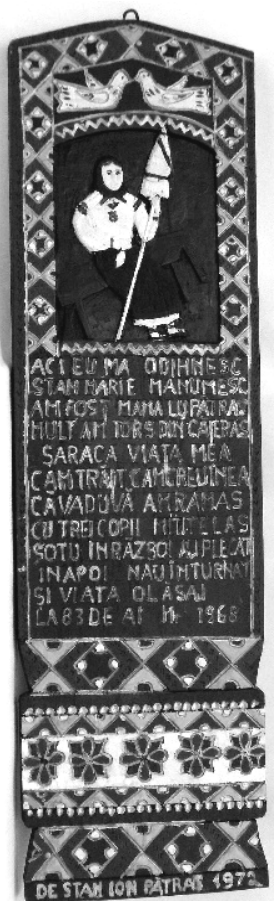 ACI EU MA ODIHNESC
STAN MARIE MANUMESC
AM FOST MAMA LU PATRAS
MULT AM TORS DUN CAIERAS
SARACA VIATA MEA
CAM TRAIT CAM GREU IN EA
CA VADUVA AM RAMAS
CU TREI COPII MITITELAS
SOTU IN RAZBOI AU PLECAT
INAPOI NAU INTURNAT
SI VIATA O LASAI
LA 83 DE AI 1968
DE STAN ION PATRAS 1972